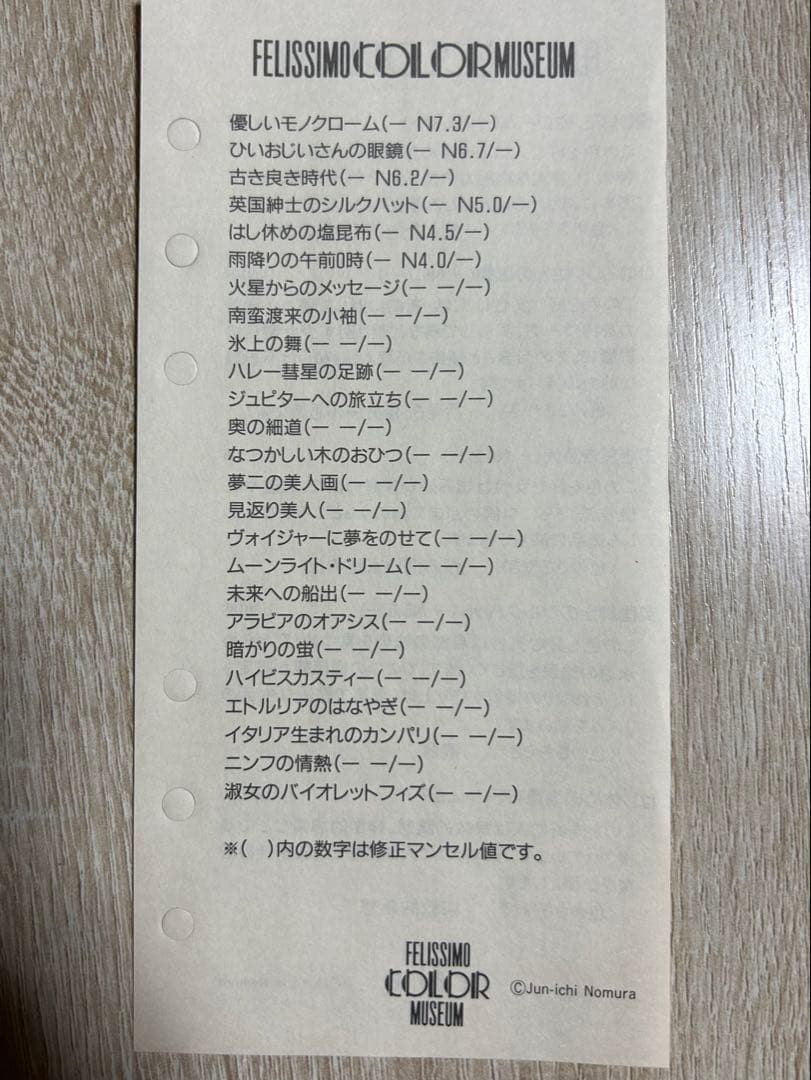 FELISSIMO COLOR MUSEUM
優しいモノクローム(ー N7.3/ー)
ひいおじいさんの眼鏡(ー N6.7/ー)
古き良き時代(ー N6.2/ー)
英国紳士のシルクハット(ー N5.0/ー)
はし休めの塩昆布(ー N4.5/ー)
雨降りの午前0時(ー N4.0/ー)
火星からのメッセージ(ー ー/ー)
南蛮渡来の小袖(ー ー/ー)
氷上の舞(ー ー/ー)
ハレー彗星の足跡(ー ー/ー)
ジュピターへの旅立ち(ー ー/ー)
奥の細道(ー ー/ー)
なつかしい木のおひつ(ー ー/ー)
夢二の美人画(ー ー/ー)
見返り美人(ー ー/ー)
ヴォイジャーに夢をのせて(ー ー/ー)
ムーンライト・ドリーム(ー ー/ー)
未来への船出(ー ー/ー)
アラビアのオアシス(ー ー/ー)
暗がりの蛍(ー ー/ー)
ハイビスカスティー(ー ー/ー)
エトルリアのはなやぎ(ー ー/ー)
イタリア生まれのカンパリ(ー ー/ー)
ニンフの情熱(ー ー/ー)
淑女のバイオレットフィズ(ー ー/ー)
※(　)内の数字は修正マンセル値です。
FELISSIMO
COLOR
MUSEUM
©Jun-ichi Nomura